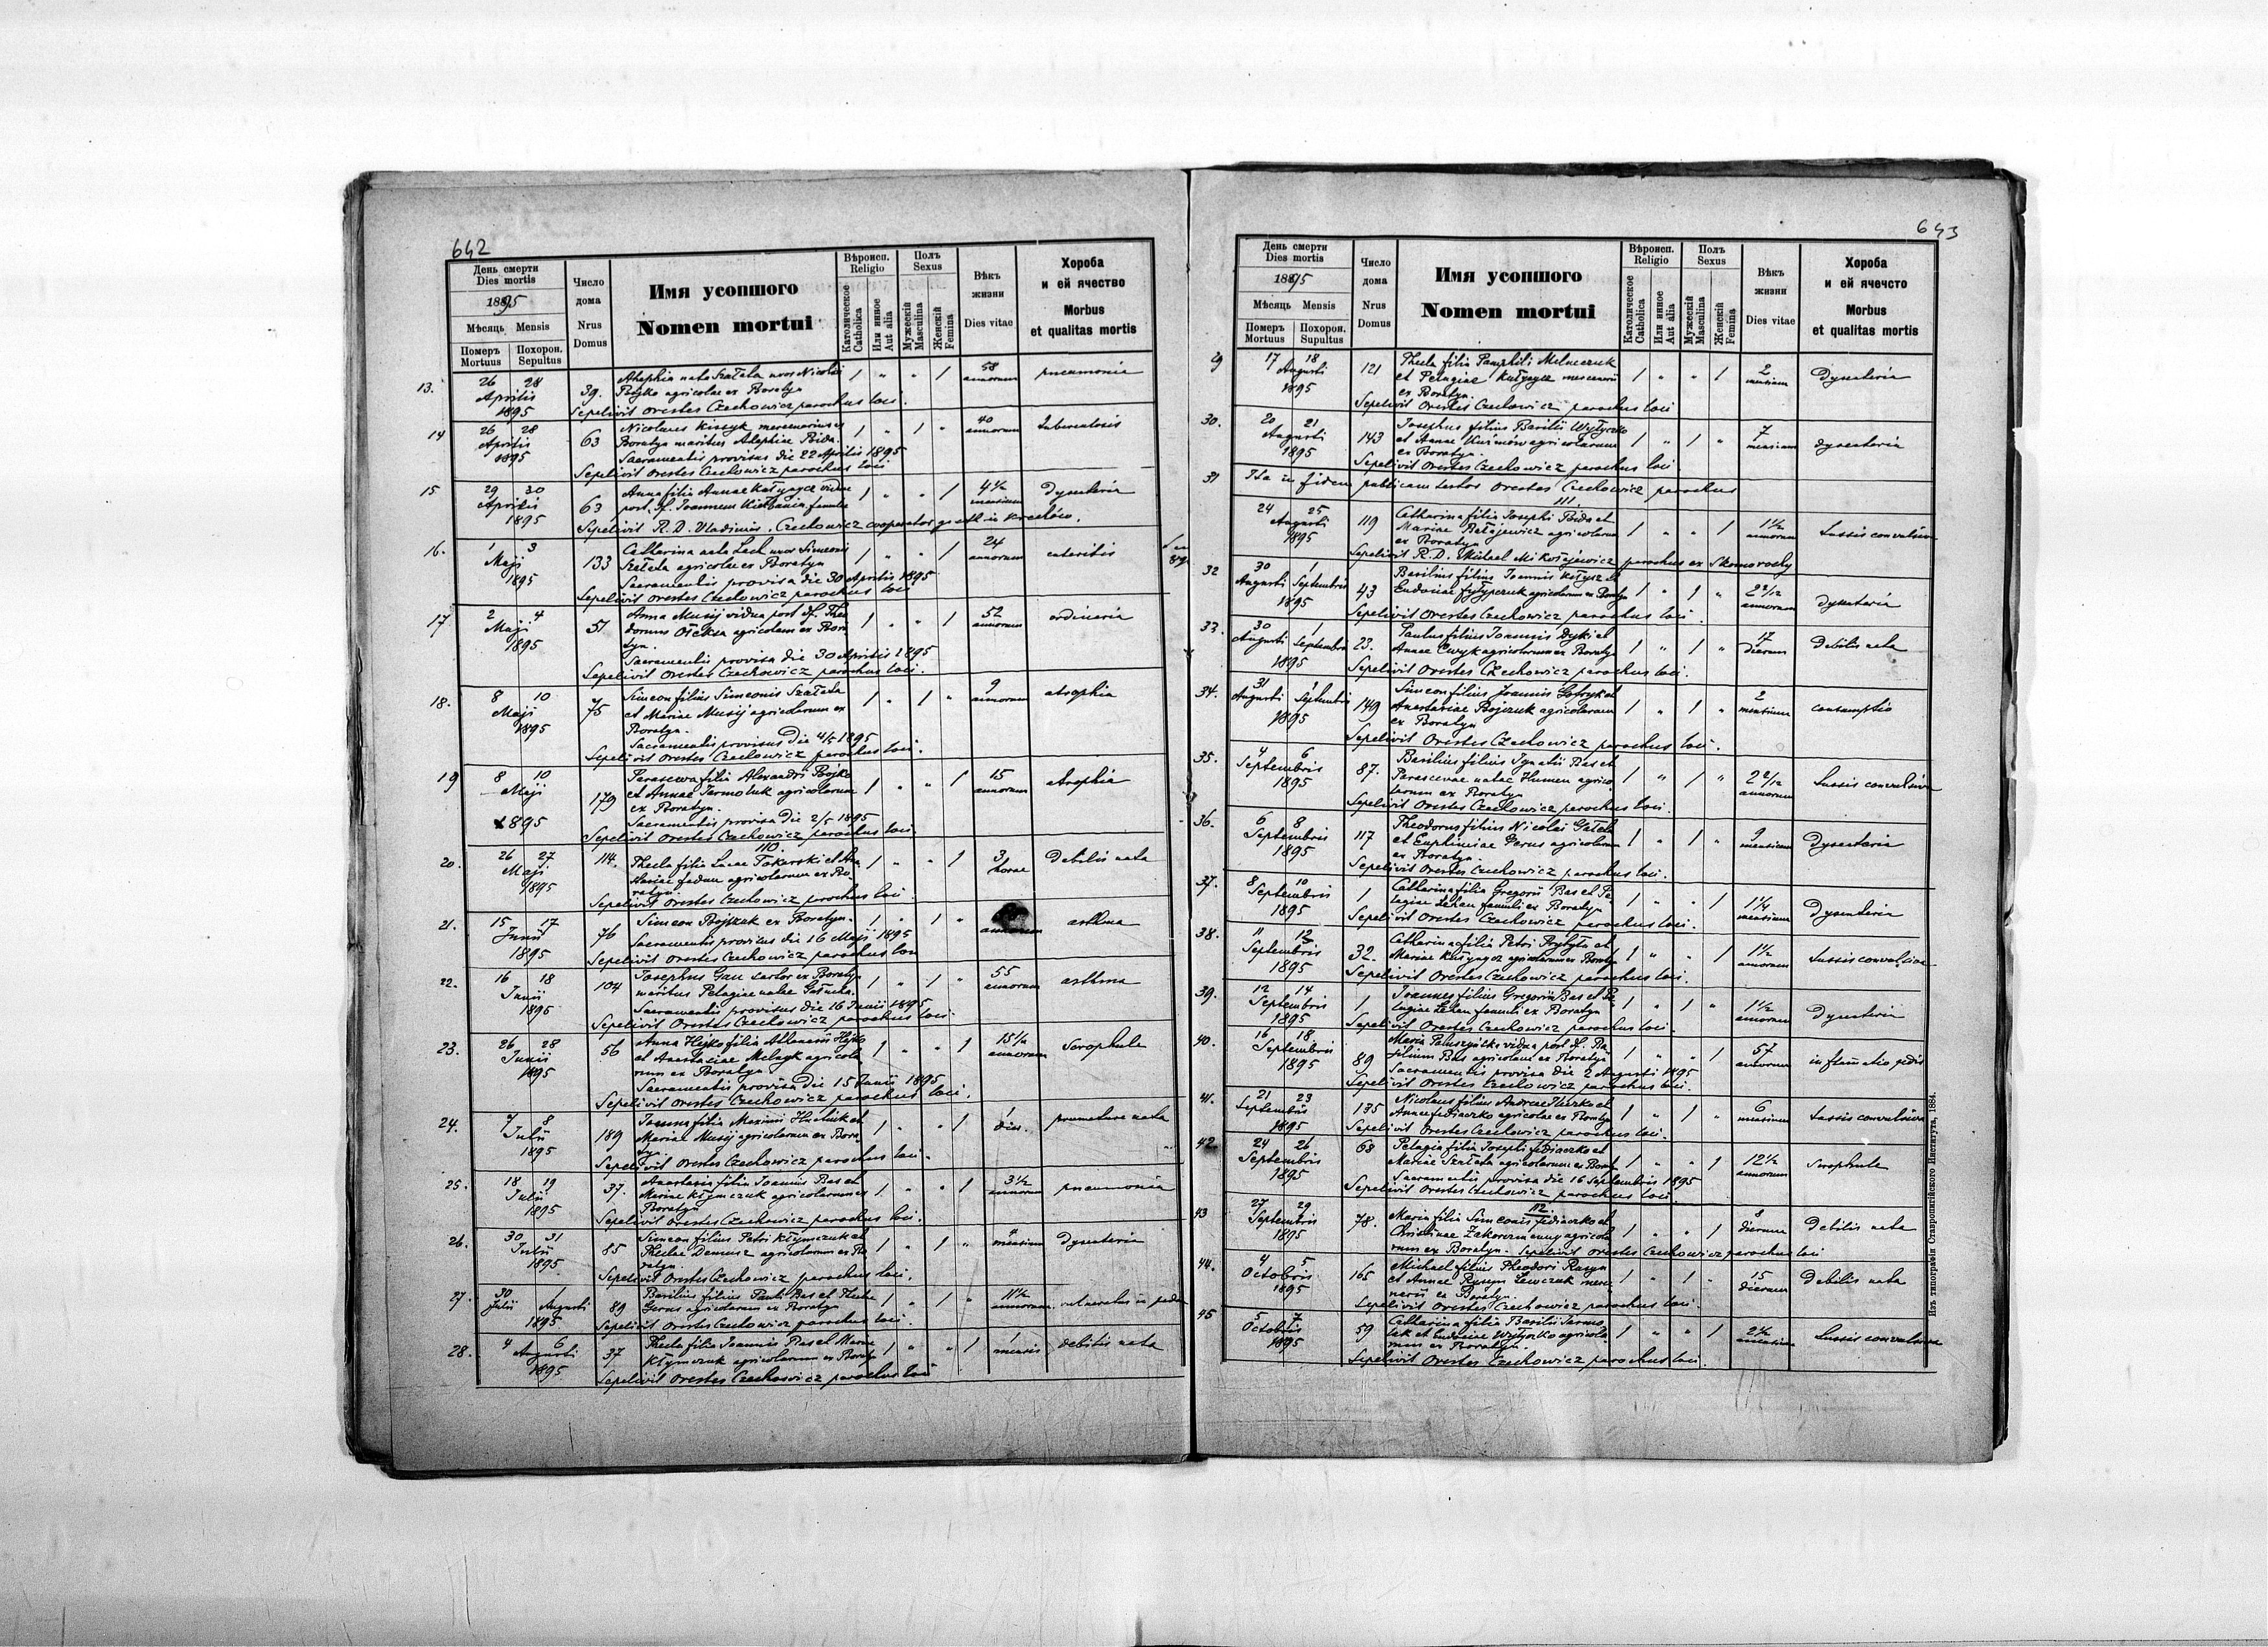 642
День смерти
Dies mortis
1895
Мѣсяць Mensis
Померъ Mortuus
Похорон. Sepultus
Число дома
Nrus Domus
Имя усопшого
Nomen mortui
Вѣроисп.
Religio
Католическое Catholica
Или инное Aut alia
Полъ
Sexus
Мужескій Masculina
Женскій Femina
Вѣкъ жизни
Dies vitae
Хороба
и ей ячество
Morbus
et qualitas mortis
13. 26 28 Aprilis 1895
39. nata Szałata uxor Nicolai
Bojko agricolae ex Boratyn
58 annorum pneumonia
Sepelivit Orestes Czechowicz parochus loci.
14 26 28 Aprilis 1895
63 Nicolaus Kissyk mercenarius ex
Boratyn maritus Bida.
40 annorum tuberculosis
Sacramentis provisus die 22 Aprilis 1895
Sepelivit Orestes Czechowicz parochus loci
15 29 30 Aprilis 1895
63 Anna filia Annae Kałyagcz vidua
post df. Joannem famula
4 1/2 mensium Dysenteria
Sepelivit R. D. Vladimir. Czechowicz cooperator
16. 1 3 Maji 1895
133 Catharina nata Lech uxor Simeonis
Szałata agricolae ex Boratyn
24 annorum enteritis
Sacramentis provisa die 30 Aprilis 1895
Sepelivit Orestes Czechowicz parochus loci
17 2 4 Maji 1895
51 Anna Musij vidua post df. Theo
dorum Ołeksa agricolam ex Bora
tyn.
52 annorum ordinaria
Sacramentis provisa die 30 Aprilis 1895
Sepelivit Orestes Czechowicz parochus loci.
18. 8 10 Maji 1895
75 Simeon filius Simeonis Szałata
et Mariae Musij agricolarum ex
Boratyn.
9 annorum atrophia
Sacramentis provisus die 4/5 1895
Sepelivit Orestes Czechowicz parochus loci.
19 8 10 Maji 1895
179 Parascewa filia Alexandri Bojko
et Annae Jarmoluk agricolarum
ex Boratyn.
15 annorum atrophia
Sacramentis provisa die 2/5 1895
Sepelivit Orestes Czechowicz parochus loci.
110.
20. 26 27 Maji 1895
114. Thecla filia Lucae Tokarski et Ana
stasiae agricolarum ex Bo
ratyn.
3 horae Debilis nata
Sepelivit Orestes Czechowicz parochus loci.
21. 15 17 Junii 1895
76 Simeon Bojczuk ex Boratyn.
annorum asthma
Sacramentis provisus die 16 Maji 1895
Sepelivit Orestes Czechowicz parochus loci
22. 16 18 Junii 1895
104 Josephus Gau sartor ex Boratyn
maritus Pelagiae natae
55 annorum asthma
Sacramentis provisus die 16 Junii 1895
Sepelivit Orestes Czechowicz parochus loci.
23. 26 28 Junii 1895
56 Anna Hejko filia Athanasii Hejko
et Anastasiae Melnyk agricola
rum ex Boratyn
annorum Scrophule
Sacramentis provisa die 15 Junii 1895
Sepelivit Orestes Czechowicz parochus loci.
24. 7 8 Julii 1895
189 Joanna filia Maximi Hnatiuk et
Mariae Musij agricolarum ex Bora
tyn.
1 dies. praemature nata
Sepelivit Orestes Czechowicz parochus loci.
25. 18 19 Julii 1895
37. Anastasia filia Joannis Bas et
Mariae Kłymczuk agricolarum ex
Boratyn
3 1/2 annorum pneumonia
Sepelivit Orestes Czechowicz parochus loci.
26. 30 31 Julii 1895
85 Simeon filius Petri Kłymczuk et
Theclae Demusz agricolarum ex Bo
ratyn
4 mensium Dysenteria
Sepelivit Orestes Czechowicz parochus loci.
27. 30 Julii 1 Augusti 1895
89 Basilius filius Pauli Bas et Theclae
Gerus agricolarum ex Boratyn
11 1/2 annorum
Sepelivit Orestes Czechowicz parochus loci.
28. 4 6 Augusti 1895
37 Thecla filia Joannis Bas et Mariae
Kłymczuk agricolarum ex Boratyn
1 mensis debilis nata
Sepelivit Orestes Czechowicz parochus loci
643
День смерти
Dies mortis
1895
Мѣсяць Mensis
Померъ Mortuus
Похорон. Supultus
Число дома
Nrus Domus
Имя усопшого
Nomen mortui
Вѣроисп.
Religio
Католическое Catholica
Или инное Aut alia
Полъ
Sexus
Мужескій Masculina
Женскій Femina
Вѣкъ жизни
Dies vitae
Хороба
и ей ячечсто
Morbus
et qualitas mortis
29 17 18 Augusti 1895
121 Thecla filia Pamphili Melneczuk
et Pelagiae Kałyagcz mercenarii
ex Boratyn.
2 mensium Dysenteria
Sepelivit Orestes Czechowicz parochus loci
30. 20 21 Augusti 1895
143 Josephus filius Basilii Wyłyczko
et Annae agricolarum
ex Boratyn.
7 mensium dysenteria
Sepelivit Orestes Czechowicz parochus loci.
31 Ita in fidem publicam testor Orestes Czechowicz parochus
111.
24 25 Augusti 1895
119 Catharina filia Josephi Bida et
Mariae agricolarum
ex Boratyn
1 1/2 annorum tussis convulsiva
Sepelivit R. D. Michael Mikołajewicz parochus ex Skomorochy
32 30 Augusti 1 Septembris 1895
43 Basilius filius Joannis et
Eudociae agricolarum ex Boratyn
2 2/12 annorum dysenteria
Sepelivit Orestes Czechowicz parochus loci.
33. 30 Augusti 1 Septembris 1895
23. Paulus filius Joannis Dyki et
Annae Cwyk agricolarum ex Boratyn
17 dierum Debilis nata
Sepelivit Orestes Czechowicz parochus loci.
34. 31 Augusti 1 Septembris 1895
149 Simeon filius Joannis et
Anastasiae Bojczuk agricolarum
ex Boratyn
2 mensium consumptio
Sepelivit Orestes Czechowicz parochus loci.
35. 4 6 Septembris 1895
87. Basilius filius Ignatii Bas et
Parascevae natae Humen agrico
larum ex Boratyn
2 2/12 annorum tussis convulsiva
Sepelivit Orestes Czechowicz parochus loci.
36. 6 8 Septembris 1895
117 Theodorus filius Nicolai
et Euphimiae Gerus agricolarum
ex Boratyn.
9 mensium Dysenteria
Sepelivit Orestes Czechowicz parochus loci.
37. 8 10 Septembris 1895
1 Catharina filia Gregorii Bas et Pe
lagiae Lehan famuli ex Boratyn
1 1/4 mensium Dysenteria
Sepelivit Orestes Czechowicz parochus loci.
38. 11 12 Septembris 1895
32. Catharina filia Petri Prybyta et
Mariae Kałyagcz agricolarum ex Boratyn
1 1/2 annorum tussis convulsiva
Sepelivit Orestes Czechowicz parochus loci.
39. 12 14 Septembris 1895
1 Joannes filius Gregorii Bas et Pe
lagiae Lehan famuli ex Boratyn
1 1/2 annorum Dysenteria
Sepelivit Orestes Czechowicz parochus loci.
40. 16 18 Septembris 1895
89 Maria vidua post df. Ba
silium Bas agricolam ex Boratyn
57 annorum inflamatio pedis
Sacramentis provisa die 2 Augusti 1895
Sepelivit Orestes Czechowicz parochus loci.
41. 21 23 Septembris 1895
135 Nicolaus filius Andreae et
Annae Fediaczko agricolae ex Boratyn
6 mensium tussis convulsiva
Sepelivit Orestes Czechowicz parochus loci.
42 24 26 Septembris 1895
68 Pelagia filia Josephi Fediaczko et
Mariae Szałata agricolarum ex Boratyn
12 1/2 annorum Scrophule
Sacramentis provisa die 16 Septembris 1895
Sepelivit Orestes Czechowicz parochus loci
112
43 27 29 Septembris 1895
78. Maria filia Simeonis Fediaczko et
Christinae agricola
rum ex Boratyn. Sepelivit Orestes Czechowicz parochus loci
8 dierum Debilis nata
44. 4 5 Octobris 1895
165 Michael filius Theodori Rusyn
et Annae Rusyn Lewczuk merce
narii ex Boratyn.
15 dierum Debilis nata
Sepelivit Orestes Czechowicz parochus loci.
45 5 7 Octobris 1895
59 Catharina filia Basilii Jarmo
luk et Eudociae Wyłyczko agricola
rum ex Boratyn.
2 1/2 mensium tussis convulsiva
Sepelivit Orestes Czechowicz parochus loci.
Изъ типографіи Ставропигійского Института, 1884.